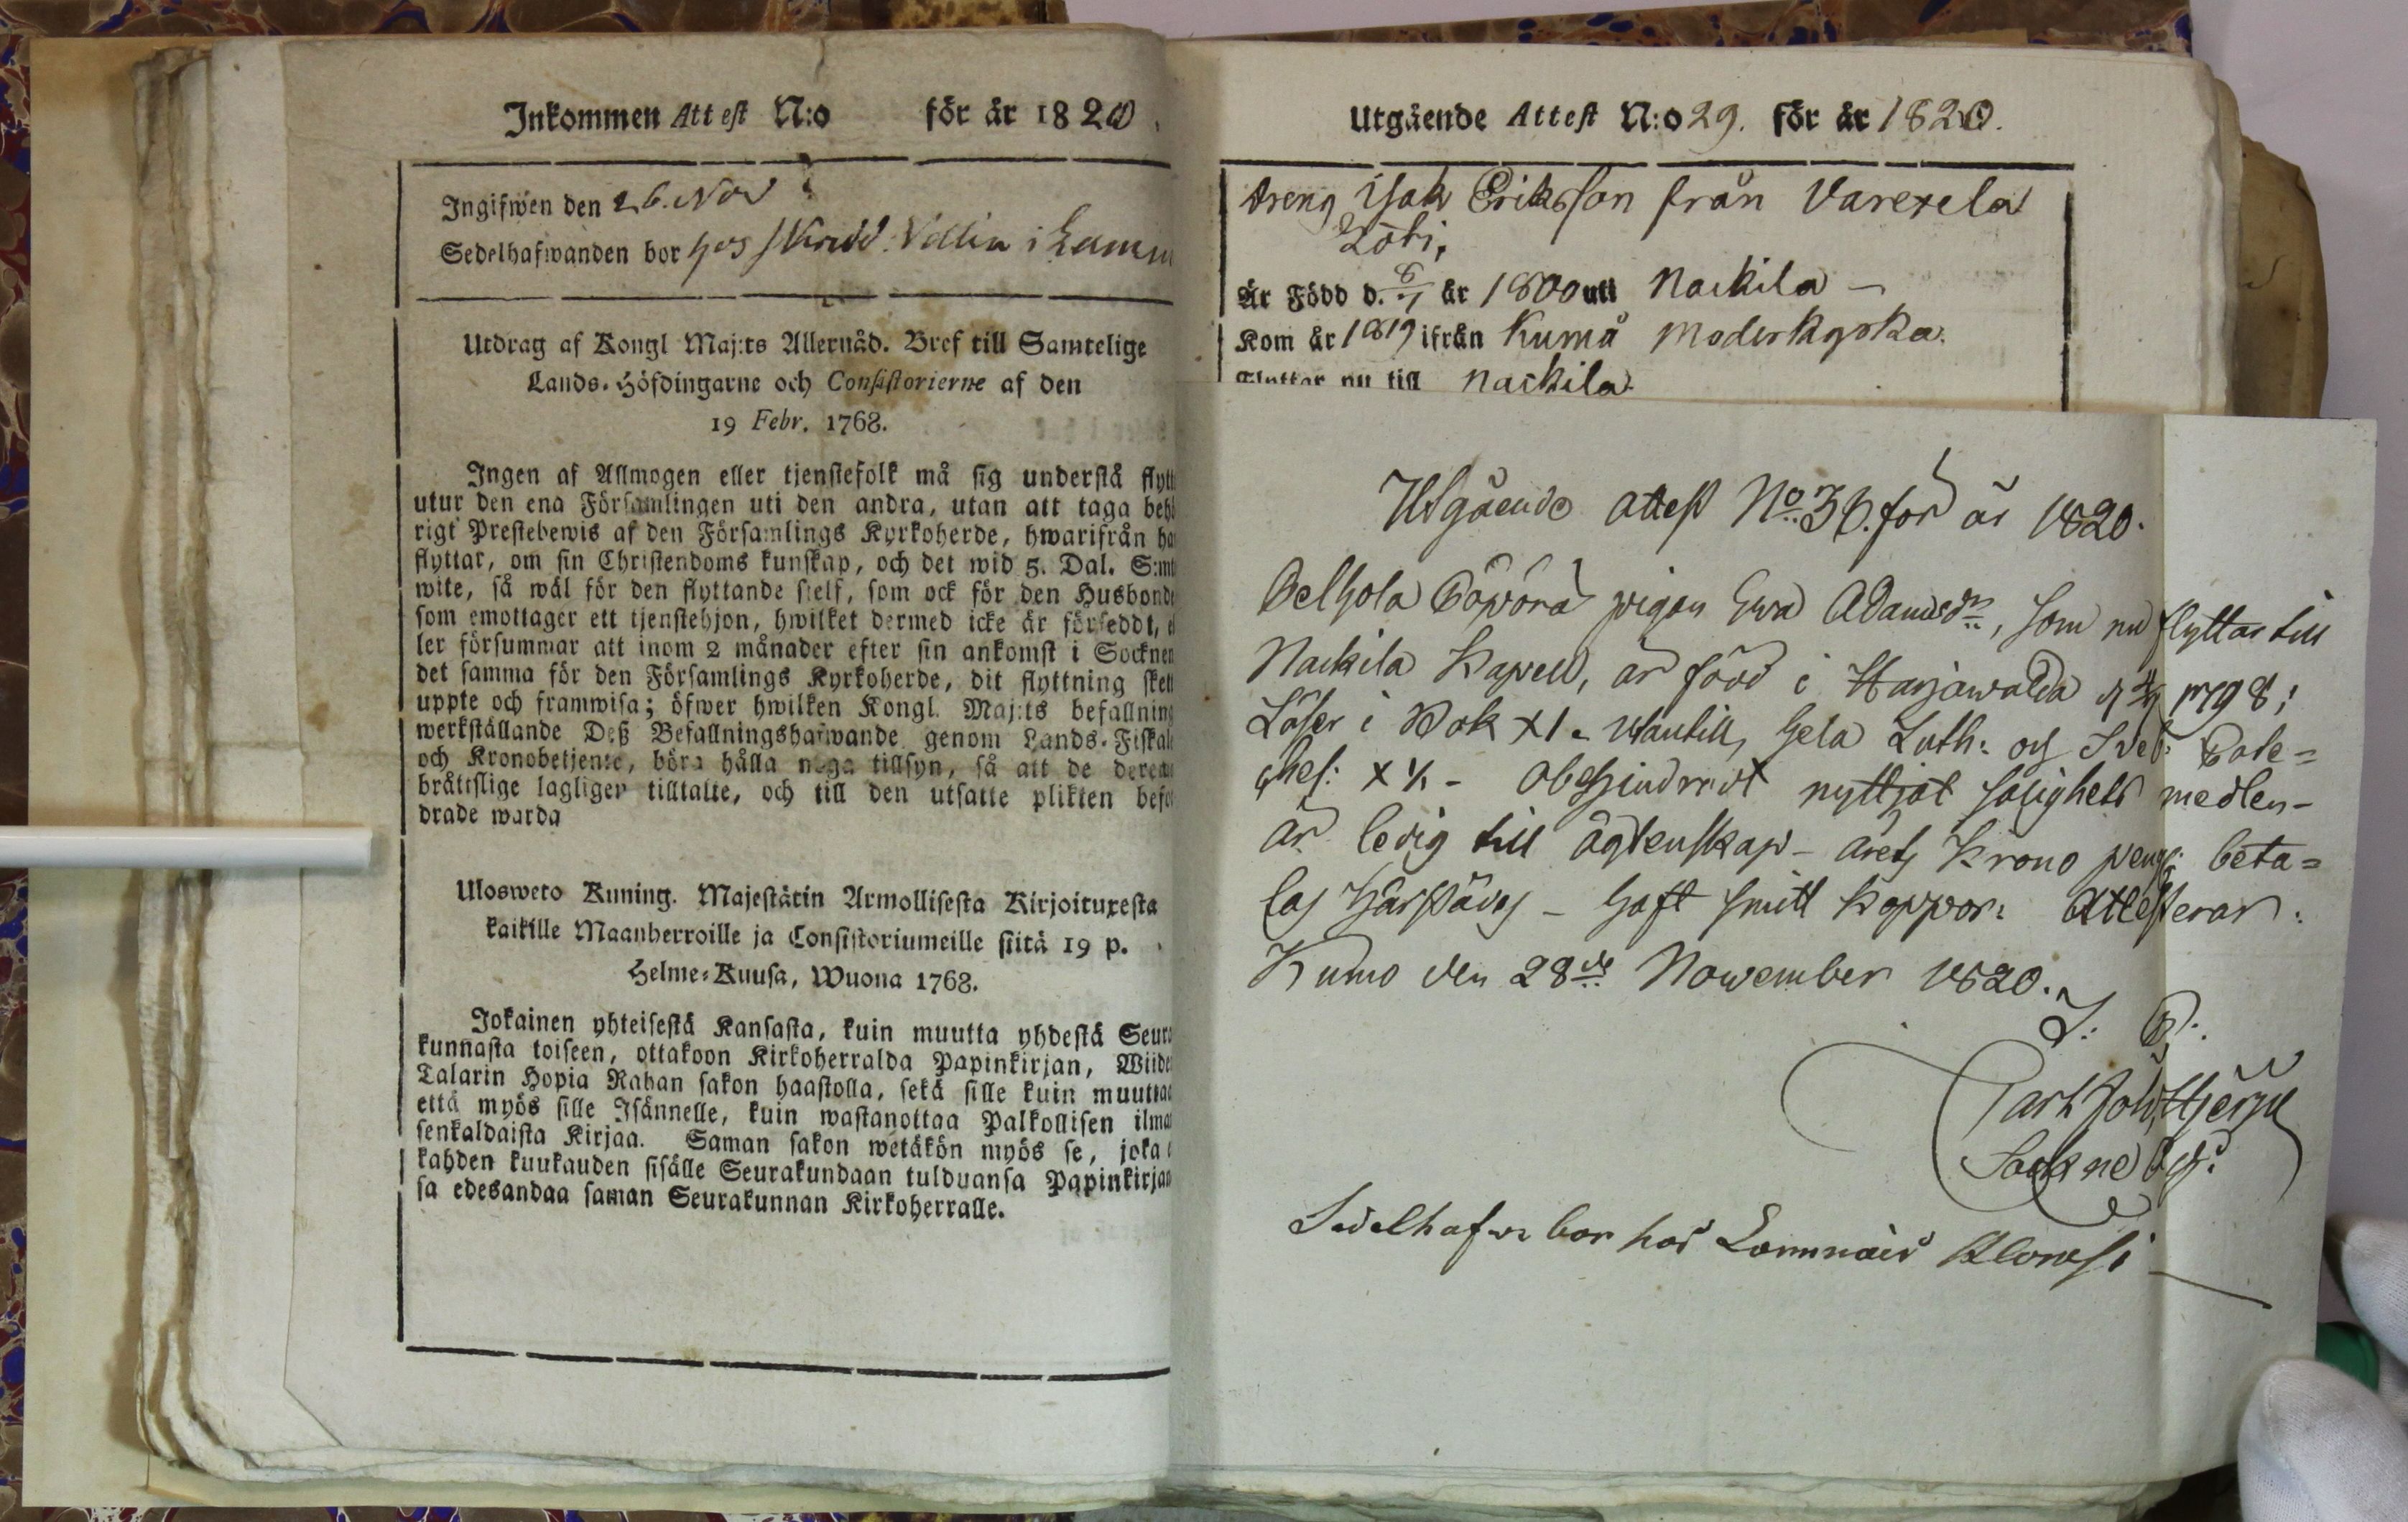 Inkommen Attest N:o för år 1820.
Ingifwen den 26. Nov
Sedelhafwanden bor hos i
Utdrag af Kongl Maj:ts Allernåd. Bref till Samtelige
Lands-Höfdingarne och Consistorierne af den
19 Febr. 1768.
Ingen af Allmogen eller tjenstefolk må sig understå flytt
utur den ena Församlingen uti den andra, utan att taga behö
rigt Prestebewis af den Församlings Kyrkoherde, hwarifrån ha
flyttar, om sin Christendoms kunskap, och det wid 5. Dal. S:mt
wite, så wäl för den flyttande sielf, som ock för den Husbonde
som emottager ett tjenstehjon, hwilket dermed icke är försedt, el
ler försummar att inom 2 månader efter sin ankomst i Socknen
det samma för den Församlings Kyrkoherde, dit flyttning sken
uppte och framwisa; öfwer hwilken Kongl. Maj:ts befallning
werkställande Deß Befallningshafwande genom Lands-Fiskale
och Kronobetjente, böra hålla noga tillsyn, så att de deremo
bråttslige lagligen tilltalte, och till den utsatte plikten befor
drade warda
Ulosweto Kuning. Majestätin Armollisesta Kirjoituxesta
kaikille Maanherroille ja Consistoriumeille siitä 19 p.
Helme-Kuusa, Wuona 1768.
Jokainen yhteisestä Kansasta, kuin muutta yhdestä Seura
kunnasta toiseen, ottakoon Kirkoherralda Papinkirjan, Wiide
Talarin Hopia Rahan sakon haastolla, sekä sille kuin muuttaa
että myös sille Isännelle, kuin wastanottaa Palkollisen ilma
senkaldaista Kirjaa. Saman sakon wetäkön myös se, joka e
kahden kuukauden sisälle Seurakundaan tulduansa Papinkirjaa
sa edesandaa saman Seurakunnan Kirkoherralle.
Utgående Attest N:o 29. för år 1820.
dreng Isak Eriksson från Varexela
Är Född d. 6/7 år 1800 uti Nackila
Kom år 1819 ifrån Kumå moderkyrka.
Flyttar nu till Nackila.
Utgående attest No. 36. för år 1820.
pigan Ewa Adamsdr, som nu flyttar till
Nackila Kapell, är född i Harjawalda d 1798;
Läser i Bok X1. utantill, hela Luth: och Sveb: Cate=
ches: X - Obehindradt nyttjat salighets medlen -
är ledig till ägtenskap - årets Krono peng: beta=
las härstädes - haft smitt koppor: Attesterar:
Kumo den 28de November 1820.
Sedelhafw bor hos